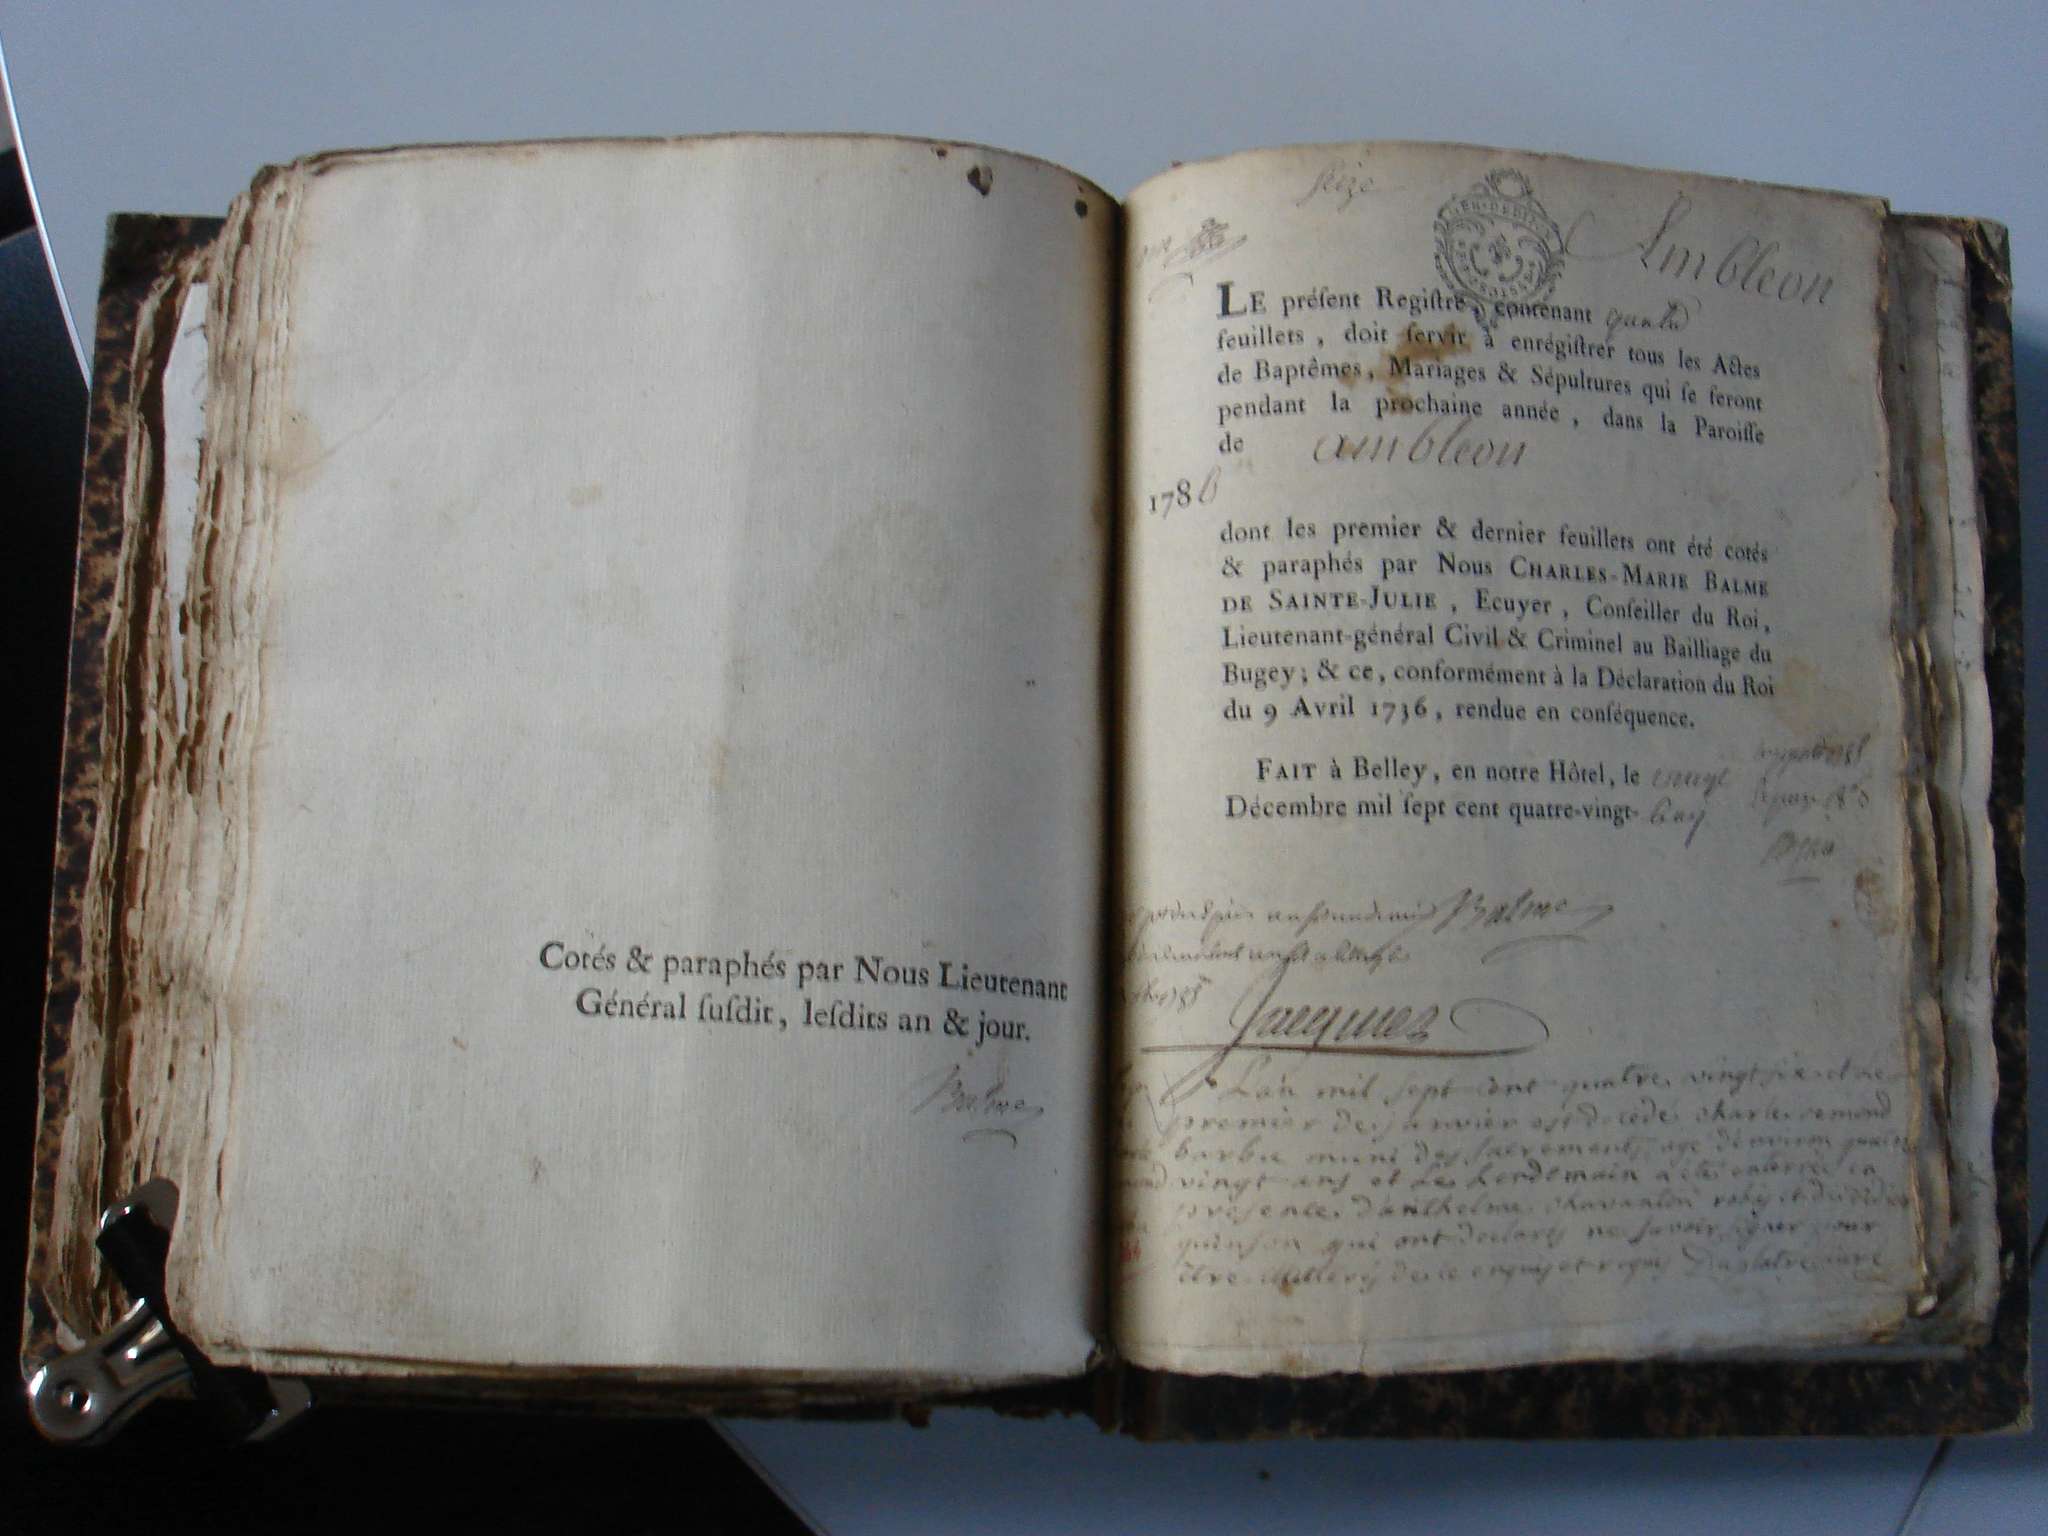 Cotés & paraphés par Nous Lieutenant
Général ſuſdit, leſdits an & jour.
Balme
Seize
Ambleon
LE préſent Regiſtre, contenant quatre
feuillets, doit ſervir à enrégiſtrer tous les Actes
de Baptêmes, Mariages & Sépultures qui ſe feront
pendant la prochaine année, dans la Paroiſſe
de ambleon
1786
dont les premier & dernier feuillets ont été cotés
& paraphés par Nous CHARLES-MARIE BALME
DE SAINTE-JULIE, Ecuyer, Conſeiller du Roi,
Lieutenant-général Civil & Criminel au Bailliage du
Bugey; & ce, conformément à la Déclaration du Roi
du 9 Avril 1736, rendue en conſéquence.
FAIT à Belley, en notre Hôtel, le
Décembre mil ſept cent quatre-vingt-
Balme
Jacquier
L'an mil sept cent quatre vingt six et le
premier de janvier est décédé charle remond
barbie muni des sacrements, age d'environ quatre
vingt ans et le lendemain a été enterré en
presence d'anthelme et de
quinson qui ont declarés ne savoir signer pour
être de ce enquis et requis